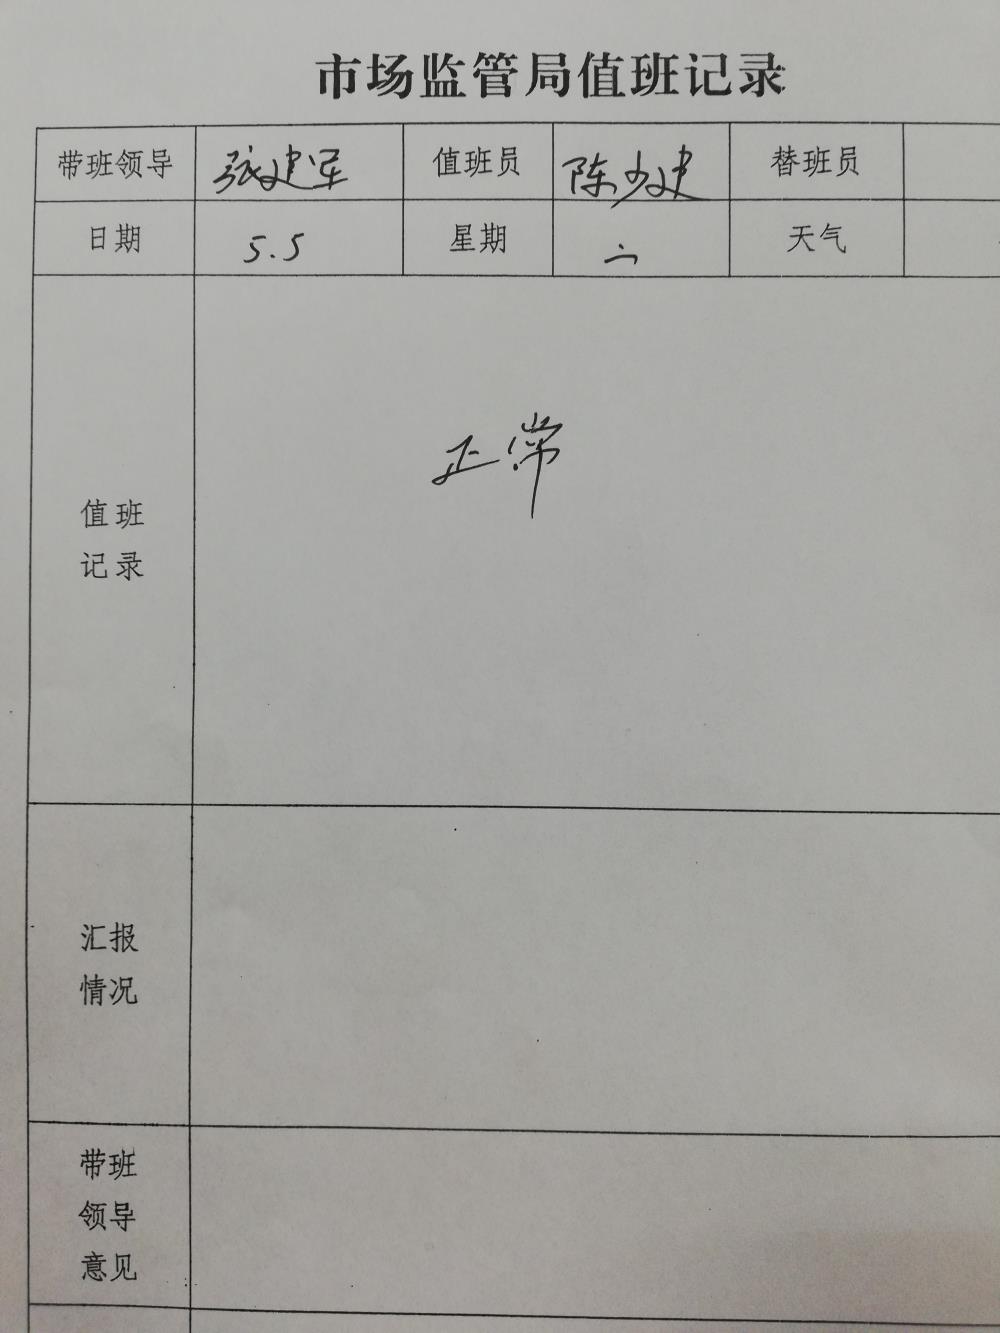 市场监管局值班记录
带班领导 张建军 值班员 陈少建 替班员
日期 5.5 星期 六 天气
正常
值班
记录
汇报
情况
带班
领导
意见